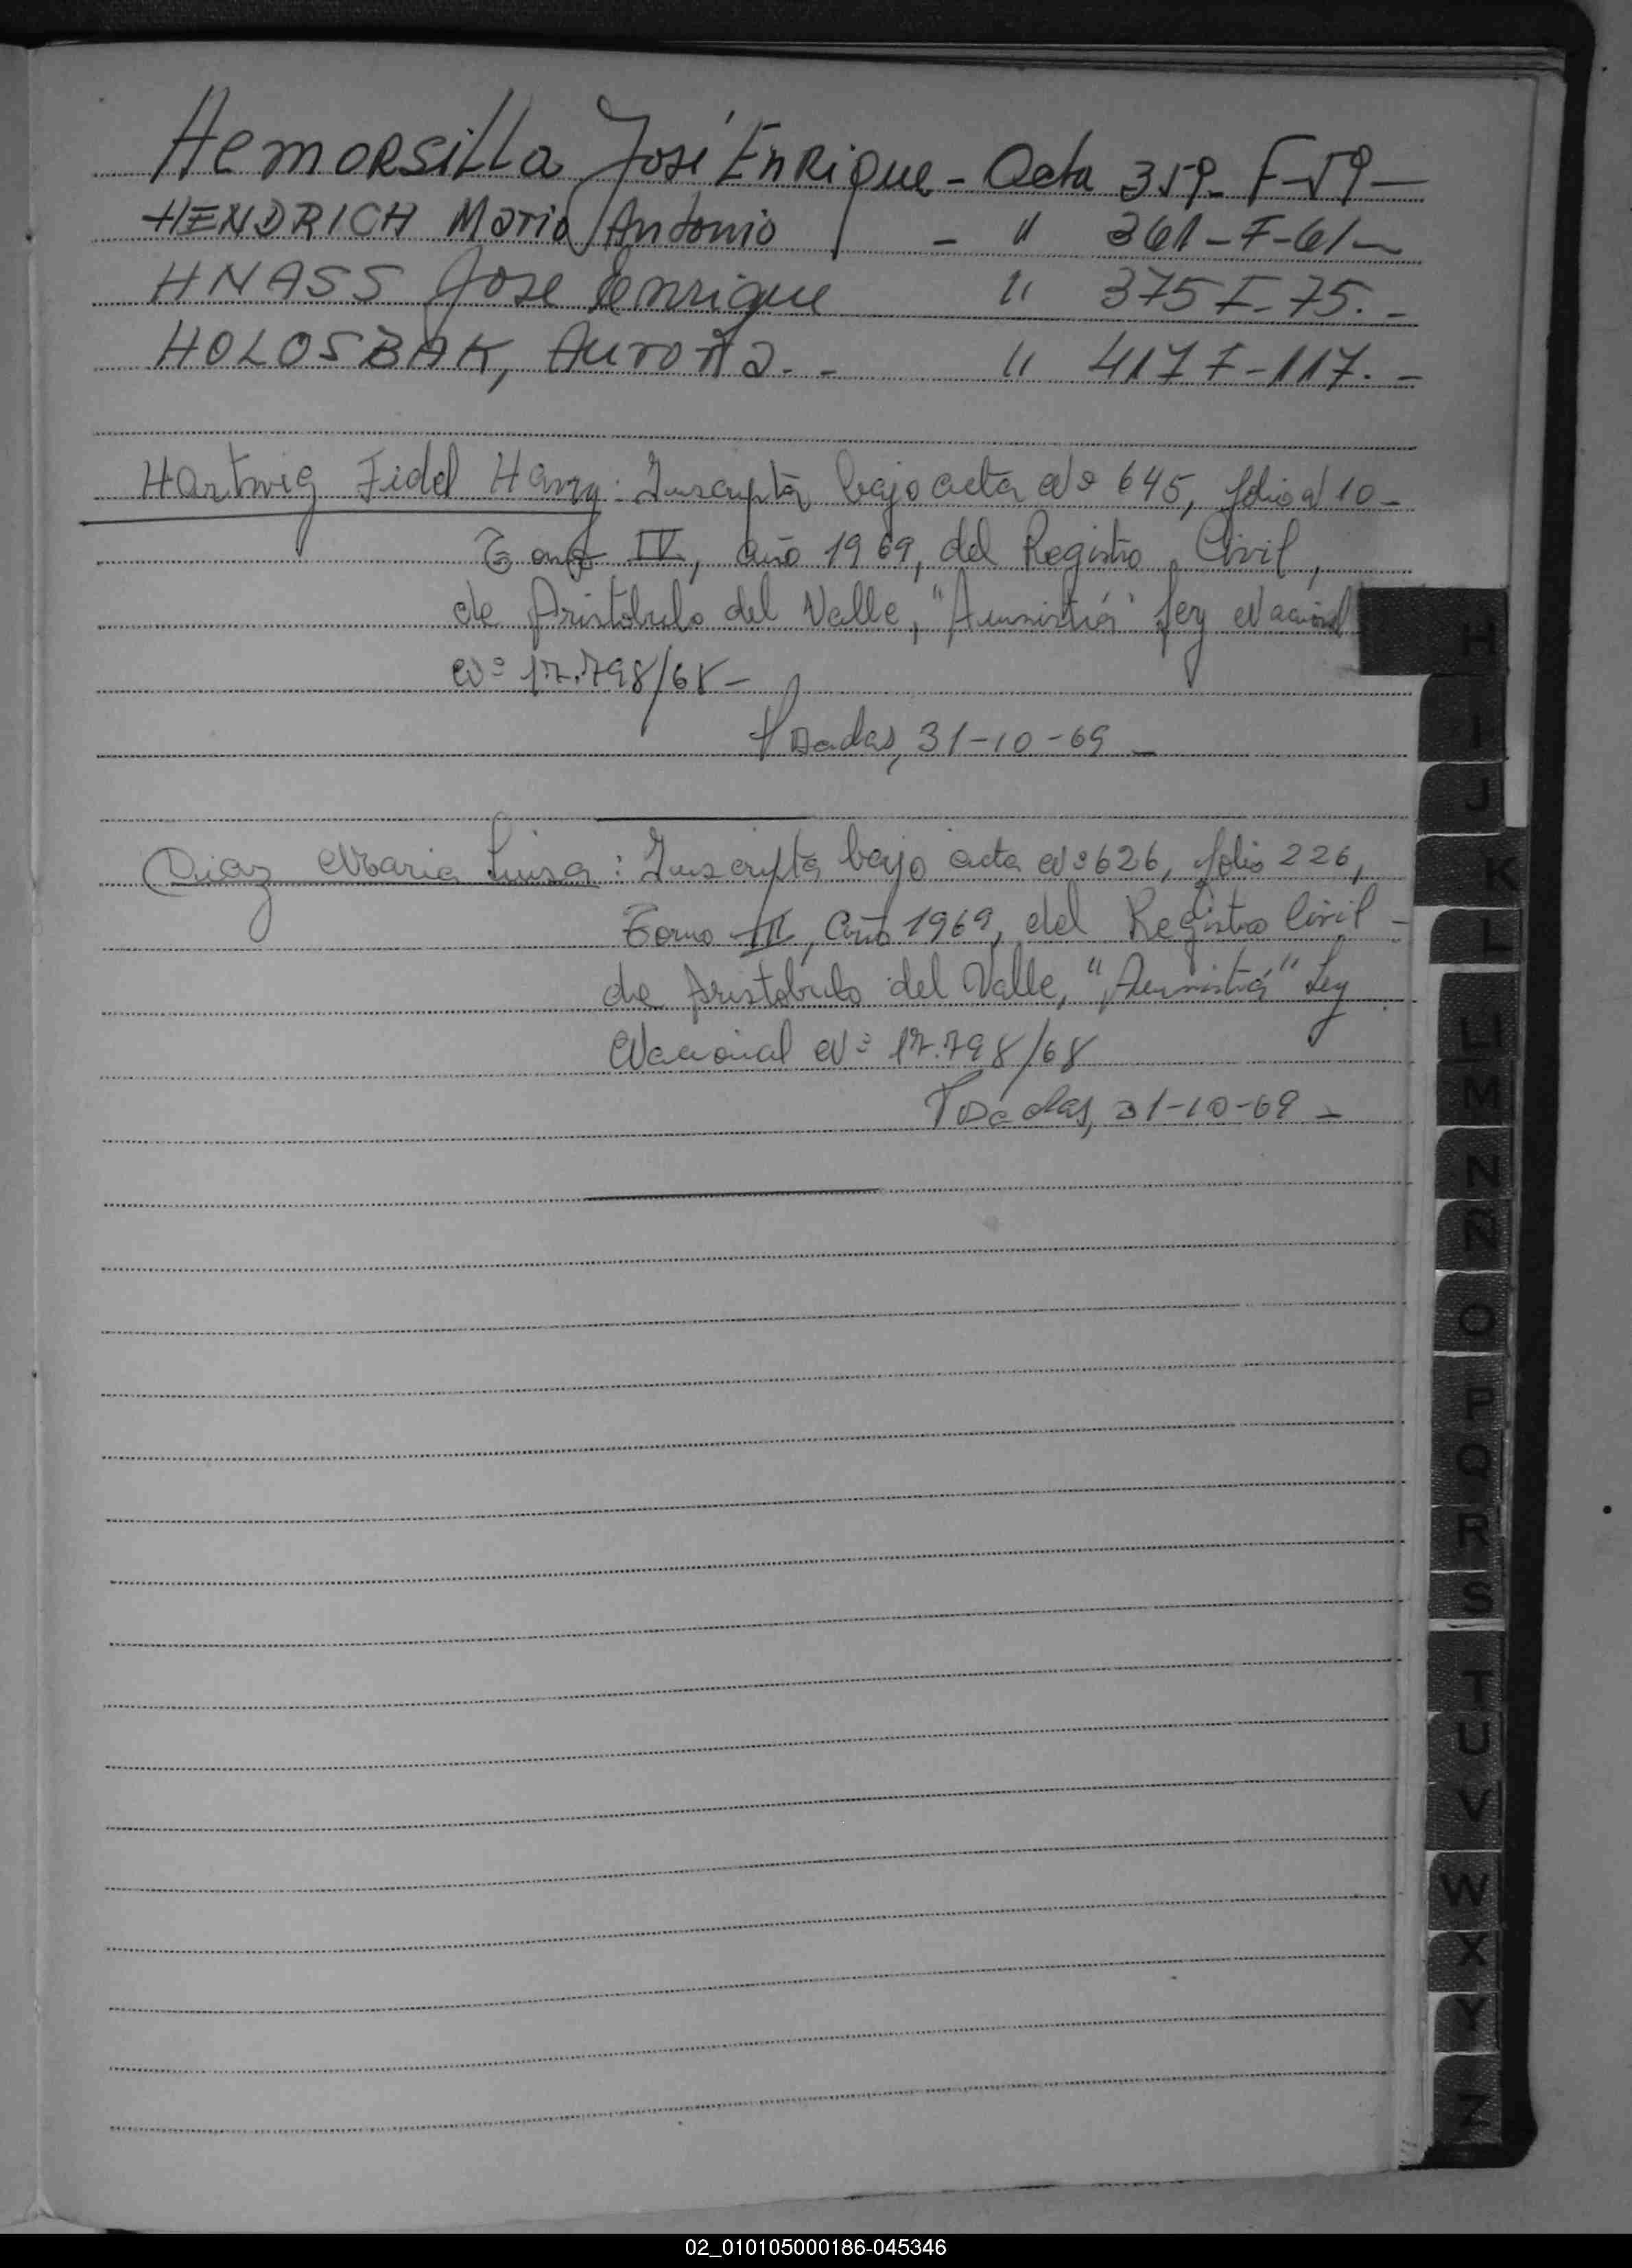 Hemorsilla José Enrique - Acta 359- F-59-
HENDRICH Mario Antonio - " 361-F-61-
HNASS Jose Enrique " 375 F-75.-
HOLOSBAK, Aurora.- " 417 F-117.-
Hartwig Fidel Harry: Inscripta bajo acta Nº 645, folio Nº 10-
Tomo IV, año 1969, del Registro Civil,
de Aristóbulo del Valle, "Amnistía" Ley Nacional
Nº 17.798/68-
Psadas, 31-10-69-
Diaz Maria Luisa: Inscripta bajo acta Nº 626, folio 226,
Tomo III, año 1969, del Registro Civil-
de Aristóbulo del Valle, "Amnistía" Ley
Nacional Nº 17.798/68
Psadas, 31-10-69-
H
I
J
K
L
LL
M
N
Ñ
O
P
Q
R
S
T
U
V
W
X
Y
Z
02_010105000186-045346